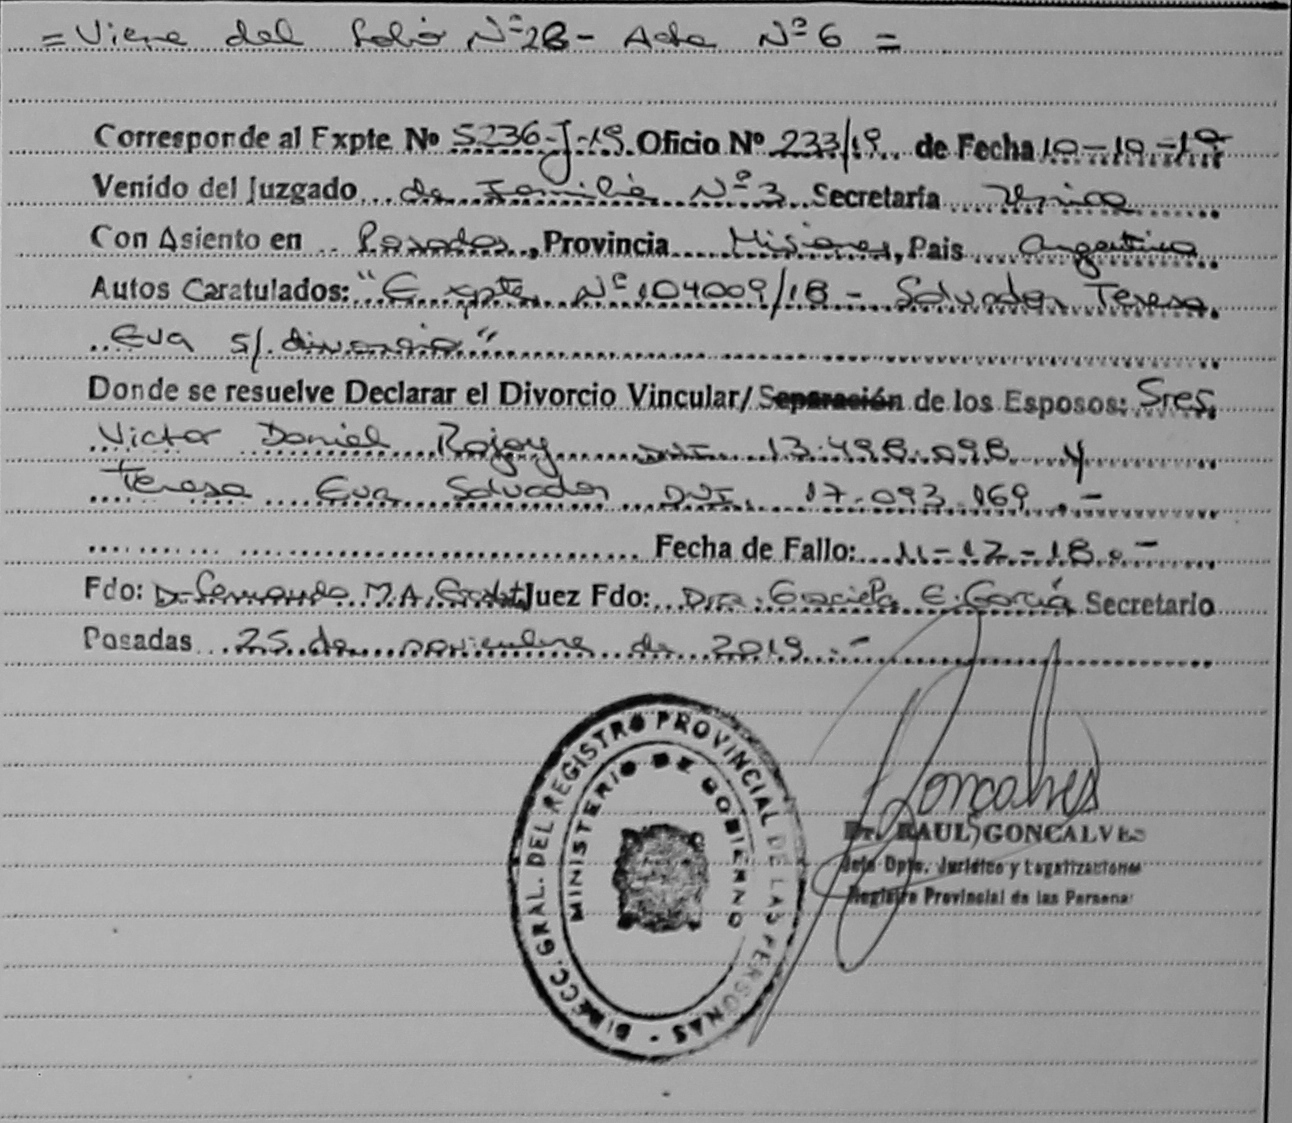 = Viene del Folio Nº 28 - Acta Nº 6 =
Corresponde al Expte Nº 5236-J-19. Oficio Nº 233/19 de Fecha 10-10-19
Venido del Juzgado de Familia Nº 3 Secretaría Unica
Con Asiento en Posadas, Provincia Misiones, Pais Argentina
Autos Caratulados: "Expte Nº 104009/18 - Salvador Teresa
Eva s/ divorcio"
Donde se resuelve Declarar el Divorcio Vincular/Separación de los Esposos: Sres.
Victor Daniel Rojay DNI 13.498.098 y
Teresa Eva Salvador DNI. 17.093.169.-
Fecha de Fallo: 11-12-18.-
Fdo: Dr Fernando M.A. Juez Fdo: Dra. Graciela E. García Secretario
Posadas 25 de noviembre de 2019.-
DIRECC. GRAL. DEL REGISTRO PROVINCIAL DE LAS PERSONAS -
MINISTERIO DE GOBIERNO
Goncalves
Dr. RAUL GONCALVES
Jefe Dpto. Jurídico y Legalizaciones
Registro Provincial de las Personas